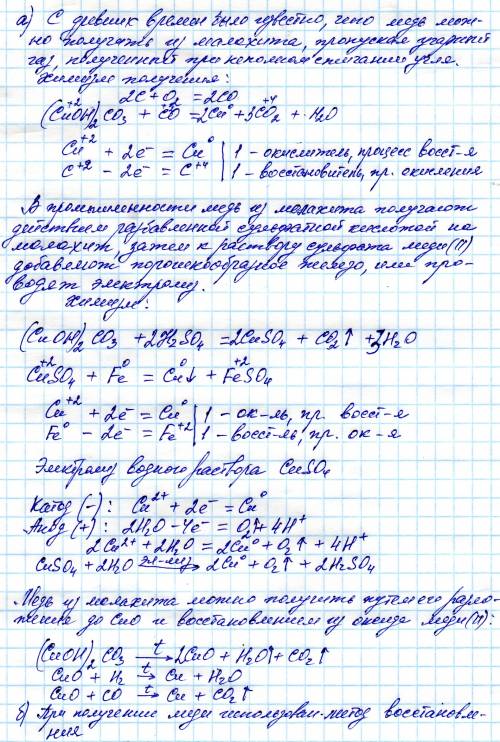 а) С древних времен было известно, что медь мож-
но получать из малахита, пропуская угарный
газ, полученный при неполном сжигании угля.
Химизм получения:
2C + O₂ = 2CO
(CuOH)₂CO₃ + 2CO = 2Cu⁰ + 3CO₂ + H₂O
Cu⁺² + 2e⁻ = Cu⁰ | 1 - окислитель, процесс восст-я
C⁺² - 2e⁻ = C⁺⁴ | 1 - восстановитель, пр. окисления
В промышленности медь из малахита получают
действием разбавленной сульфатной кислотой на
малахит, затем к раствору сульфата меди (II)
добавляют порошкообразное железо, или про-
водят электролиз.
Химизм:
(CuOH)₂CO₃ + 2H₂SO₄ = 2CuSO₄ + CO₂↑ + 3H₂O
Cu⁺²SO₄ + Fe⁰ = Cu⁰↓ + Fe⁺²SO₄
Cu⁺² + 2e⁻ = Cu⁰ | 1 - ок-ль, пр. восст-я
Fe⁰ - 2e⁻ = Fe⁺² | 1 - восст-ль, пр. ок-я
Электролиз водного раствора CuSO₄
Катод (-): Cu²⁺ + 2e⁻ = Cu⁰
Анод (+): 2H₂O - 4e⁻ = O₂↑ + 4H⁺
2Cu²⁺ + 2H₂O = 2Cu⁰ + O₂↑ + 4H⁺
CuSO₄ + 2H₂O эл-лиз→ 2Cu⁰ + O₂↑ + 2H₂SO₄
Медь из малахита можно получить путем его разло-
жения до CuO и восстановлением из оксида меди (II):
(CuOH)₂CO₃ t→ 2CuO + H₂O↑ + CO₂↑
CuO + H₂ t→ Cu + H₂O
CuO + CO t→ Cu + CO₂↑
б) При получении меди использован метод восстановле-
ния